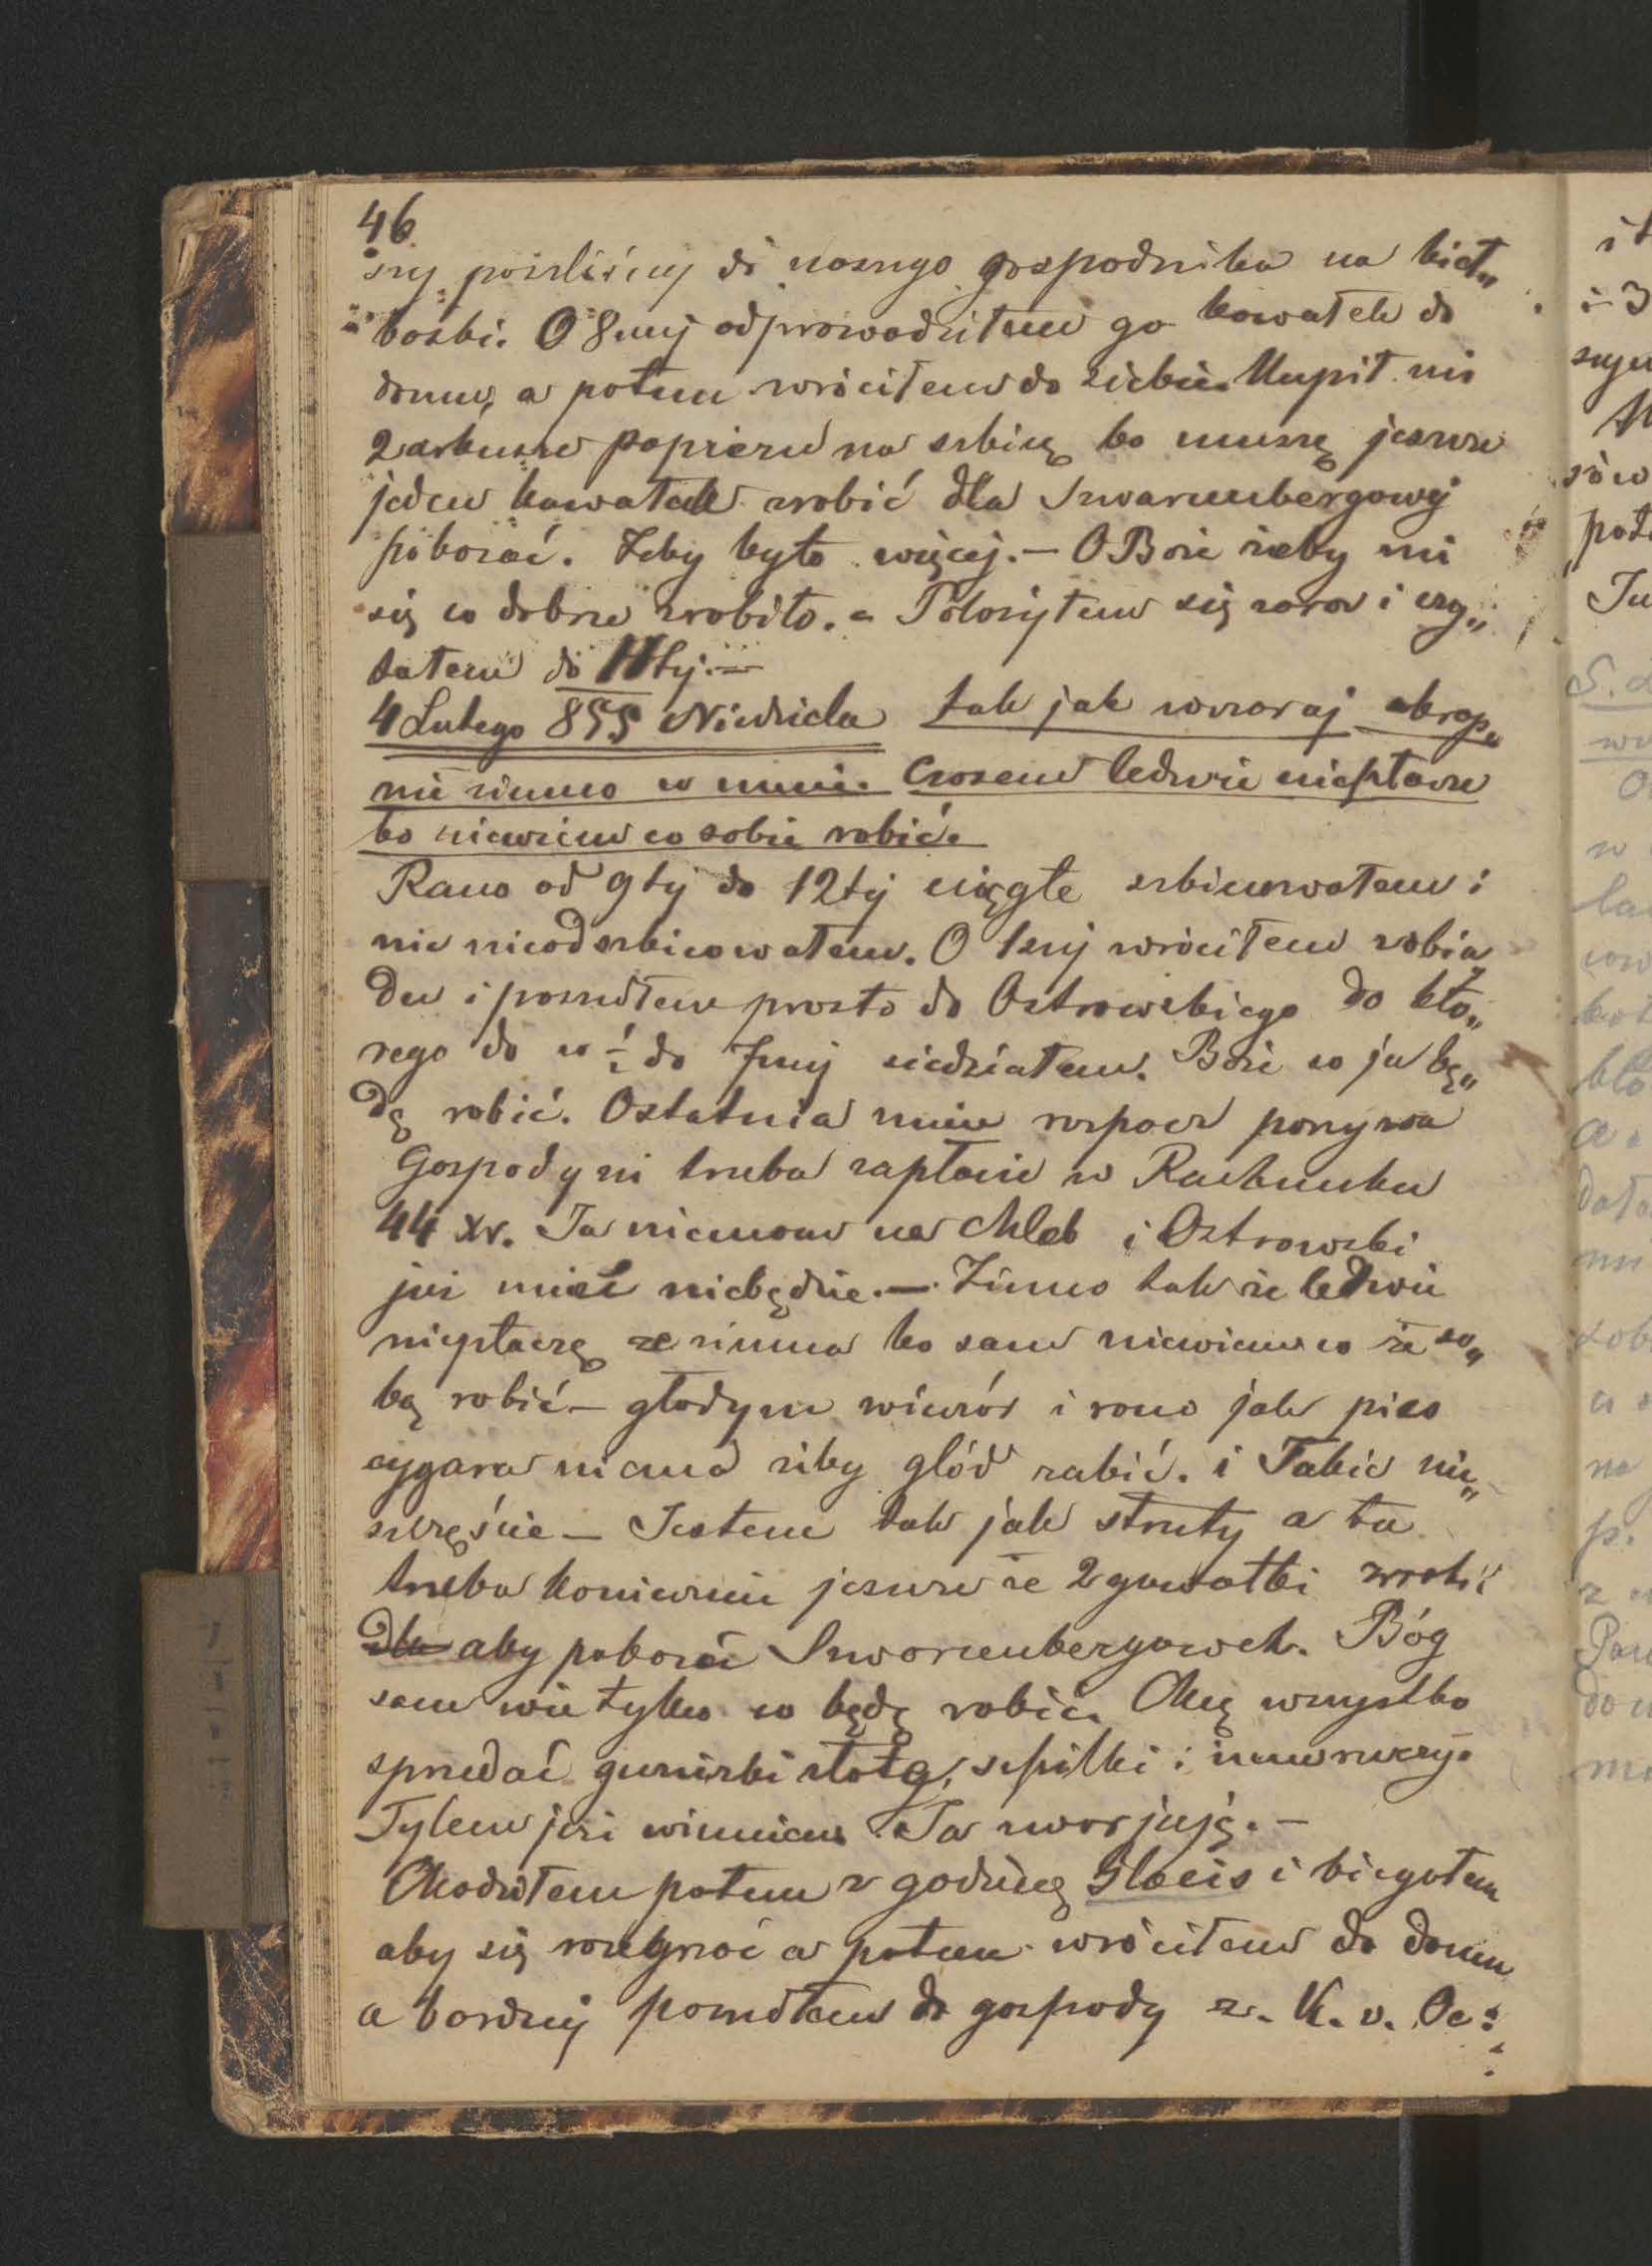 46
szy poszliśmy do naszego gospodnika na kieł„
baski. O 8mej odprowadziłem go kawałek do
domu, a potem wróciłem do siebie. Kupił mi
2 arkusze papieru na szkicę bo muszę jeszcze
jeden kawałek zrobić dla Szwarzenbergowej
pokazać. Żeby było więcej. — O Boże żeby mi
się co dobrze zrobiło. – Położyłem się zaraz i czy„
tałem do 11tej. —
4 Lutego 855 Niedziela tak jak wczoraj okrop„
nie zimno w mnie. Czasem ledwie niepłacze
bo niewiem co sobie robić.
Rano od 9tej do 12tej ciągle szkicowałem i
nic nieodszkicowałem. O 1szej wróciłem z obia
du i poszedłem prosto do Ostrowskiego do któ„
rego do w ½ do 7mej siedziałem. Boże co ja bę„
dę robić. Ostatnia mnie rozpacz porywa
Gospodyni trzeba zapłacić w Rachunku
44 xr. Ja niemam na chleb i Ostrowski
już mieć niebędzie. — Zimno tak że ledwie
niepłaczę ze zimna bo sam niewiem co ze so„
bą robić – głodym wieczór i rano jak pies
cygara niema żeby głód zabić. i Takie nie„
szczęście – Jestem tak jak struty a tu
trzeba koniecznie jeszcze ze 2 gawałki zrobić
dla aby pokazać Szwarcenbergowek. Bóg
sam wie tylko co będę robić. Chcę wszystko
sprzedać guziczki złotą, szpilki i
Tylem już winnien. Ja zwarjuję. –
Chodziłem potem z godzinę Glacis i biegałem
aby się rozegrzać a potem wróciłem do domu
a bardziej poszedłem do gospody z. K. v. Oe: